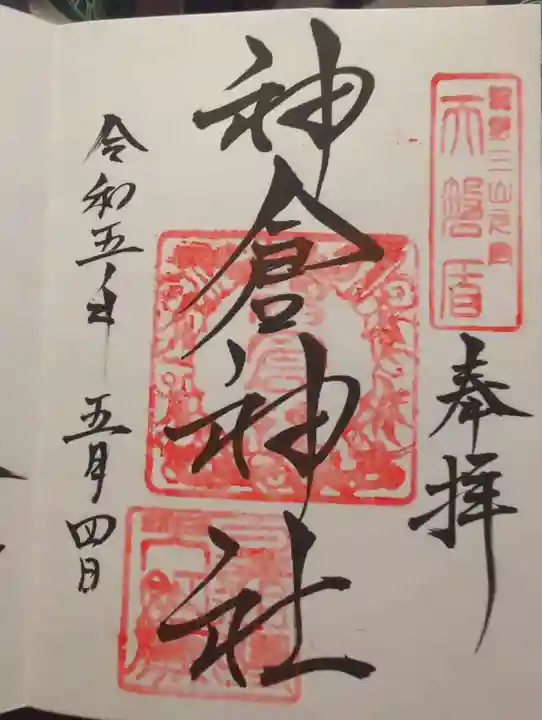 熊野三山元宮
天磐盾
奉拝
神倉神社
令和五年
五月四日